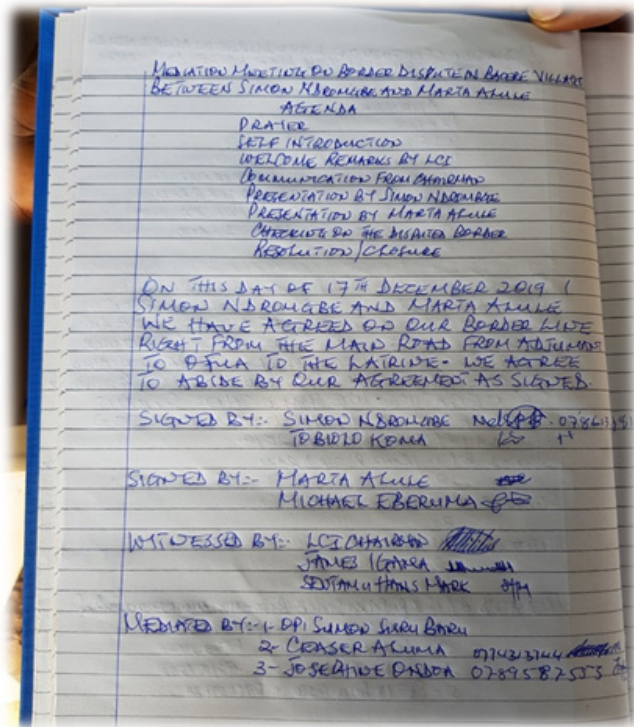 MEDIATION MEETING ON BORDER DISPUTE IN BAGERE VILLAGE
BETWEEN SIMON NDROMGBE AND MARTA ALULE
AGENDA
PRAYER
SELF INTRODUCTION
WELCOME REMARKS BY LCI
COMMUNICATION FROM CHAIRMAN
PRESENTATION BY SIMON NDROMGBE
PRESENTATION BY MARTA ALULE
CHECKING ON THE DISPUTED BORDER
RESOLUTION/CLOSURE
ON THIS DAY OF 17TH DECEMBER 2019 I
SIMON NDROMGBE AND MARTA ALULE
WE HAVE AGREED ON OUR BORDER LINE
RIGHT FROM THE MAIN ROAD FROM ADJUMANI
TO OFUA TO THE LATRINE- WE AGREE
TO ABIDE BY OUR AGREEMENT AS SIGNED.
SIGNED BY:- SIMON NDROMGBE
TOBIOLO KOMA
SIGNED BY:- MARTA ALULE
MICHAEL EBERUMA
WITNESSED BY:- LCI CHAIRMAN
JAMES IGAMA
HANS MARK
MEDIATED BY:-1- SIMON BARU
2- CEASER ALUMA
3- JOSEPHINE ONDOA 0789587555